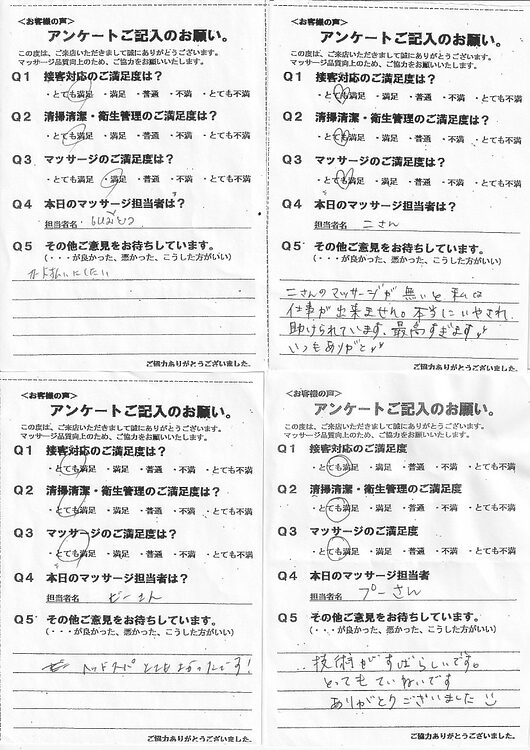 ＜お客様の声＞
アンケートご記入のお願い。
この度は、ご来店いただきまして誠にありがとうございます。
マッサージ品質向上のため、ご協力をお願いいたします。
Q1 接客対応のご満足度は？
・とても満足 ・満足 ・普通 ・不満 ・とても不満
Q2 清掃清潔・衛生管理のご満足度は？
・とても満足 ・満足 ・普通 ・不満 ・とても不満
Q3 マッサージのご満足度は？
・とても満足 ・満足 ・普通 ・不満 ・とても不満
Q4 本日のマッサージ担当者は？
担当者名
Q5 その他ご意見をお待ちしています。
（・・・が良かった、悪かった、こうした方がいい）
カード払いにしたい
ご協力ありがとうございました。
＜お客様の声＞
アンケートご記入のお願い。
この度は、ご来店いただきまして誠にありがとうございます。
マッサージ品質向上のため、ご協力をお願いいたします。
Q1 接客対応のご満足度は？
・とても満足 ・満足 ・普通 ・不満 ・とても不満
Q2 清掃清潔・衛生管理のご満足度は？
・とても満足 ・満足 ・普通 ・不満 ・とても不満
Q3 マッサージのご満足度は？
・とても満足 ・満足 ・普通 ・不満 ・とても不満
Q4 本日のマッサージ担当者は？
担当者名 ニさん
Q5 その他ご意見をお待ちしています。
（・・・が良かった、悪かった、こうした方がいい）
ニさんのマッサージが無いと私は
仕事が出来ません。本当にいやされ
助けられています、最高すぎます♪
いつもありがと♪
ご協力ありがとうございました。
＜お客様の声＞
アンケートご記入のお願い。
この度は、ご来店いただきまして誠にありがとうございます。
マッサージ品質向上のため、ご協力をお願いいたします。
Q1 接客対応のご満足度は？
・とても満足 ・満足 ・普通 ・不満 ・とても不満
Q2 清掃清潔・衛生管理のご満足度は？
・とても満足 ・満足 ・普通 ・不満 ・とても不満
Q3 マッサージのご満足度は？
・とても満足 ・満足 ・普通 ・不満 ・とても不満
Q4 本日のマッサージ担当者は？
担当者名 ビーさん
Q5 その他ご意見をお待ちしています。
（・・・が良かった、悪かった、こうした方がいい）
ヘッドスパとてもよかったです！
ご協力ありがとうございました。
＜お客様の声＞
アンケートご記入のお願い。
この度は、ご来店いただきまして誠にありがとうございます。
マッサージ品質向上のため、ご協力をお願いいたします。
Q1 接客対応のご満足度
・とても満足 ・満足 ・普通 ・不満 ・とても不満
Q2 清掃清潔・衛生管理のご満足度
・とても満足 ・満足 ・普通 ・不満 ・とても不満
Q3 マッサージのご満足度
・とても満足 ・満足 ・普通 ・不満 ・とても不満
Q4 本日のマッサージ担当者
担当者名 プーさん
Q5 その他ご意見をお待ちしています。
（・・・が良かった、悪かった、こうした方がいい）
技術がすばらしいです。
とってもていねいです
ありがとうございました
ご協力ありがとうございました。